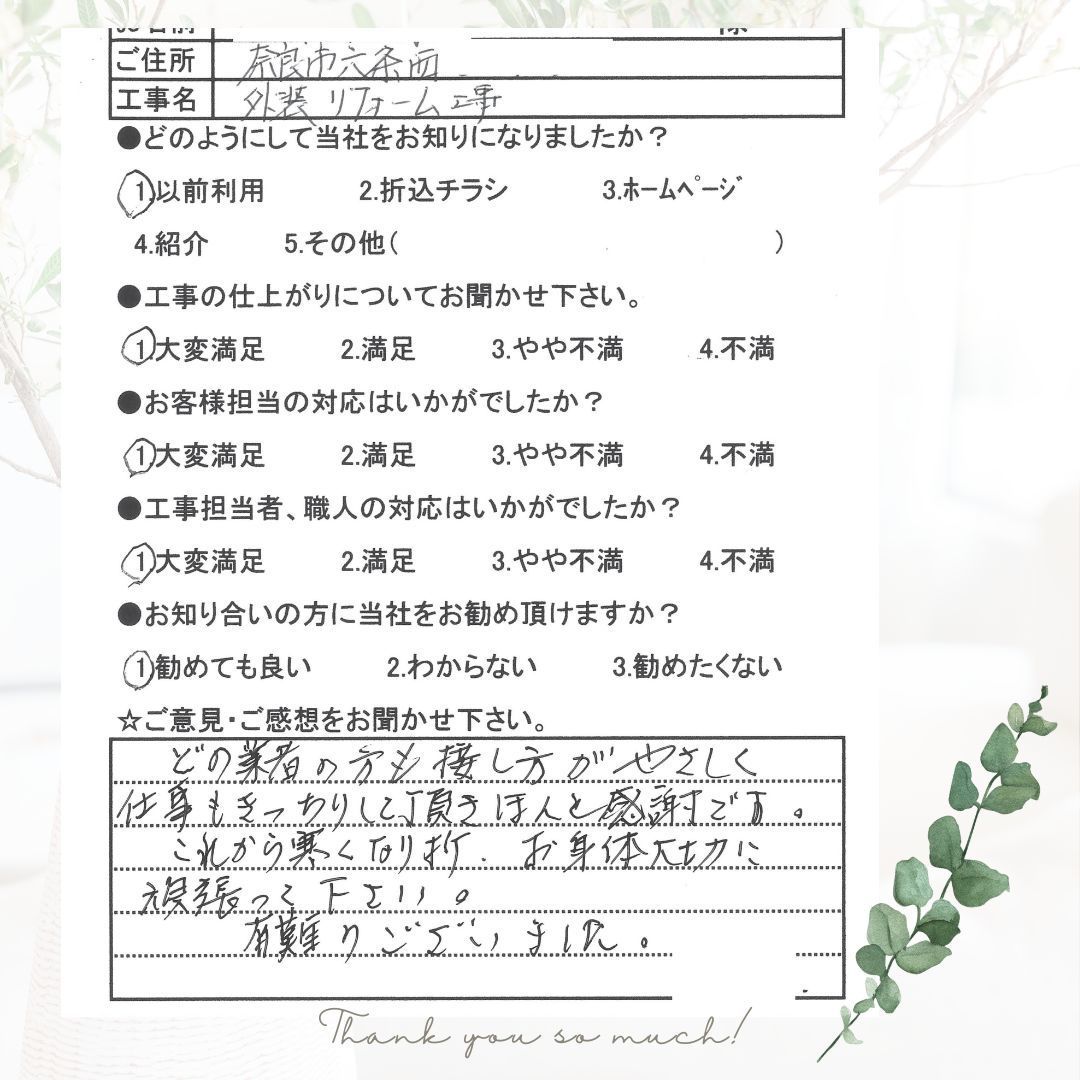 お名前 様
ご住所 奈良市六条西
工事名 外装リフォーム工事
●どのようにして当社をお知りになりましたか？
1.以前利用 2.折込チラシ 3.ﾎｰﾑﾍﾟｰｼﾞ
4.紹介 5.その他( )
●工事の仕上がりについてお聞かせ下さい。
1.大変満足 2.満足 3.やや不満 4.不満
●お客様担当の対応はいかがでしたか？
1.大変満足 2.満足 3.やや不満 4.不満
●工事担当者、職人の対応はいかがでしたか？
1.大変満足 2.満足 3.やや不満 4.不満
●お知り合いの方に当社をお勧め頂けますか？
1.勧めても良い 2.わからない 3.勧めたくない
☆ご意見・ご感想をお聞かせ下さい。
どの業者の方も接し方がやさしく
仕事もきっちりして頂きほんと感謝です。
これから寒くなり折、お身体大切に
頑張って下さい。
有難りございました。
Thank you so much!